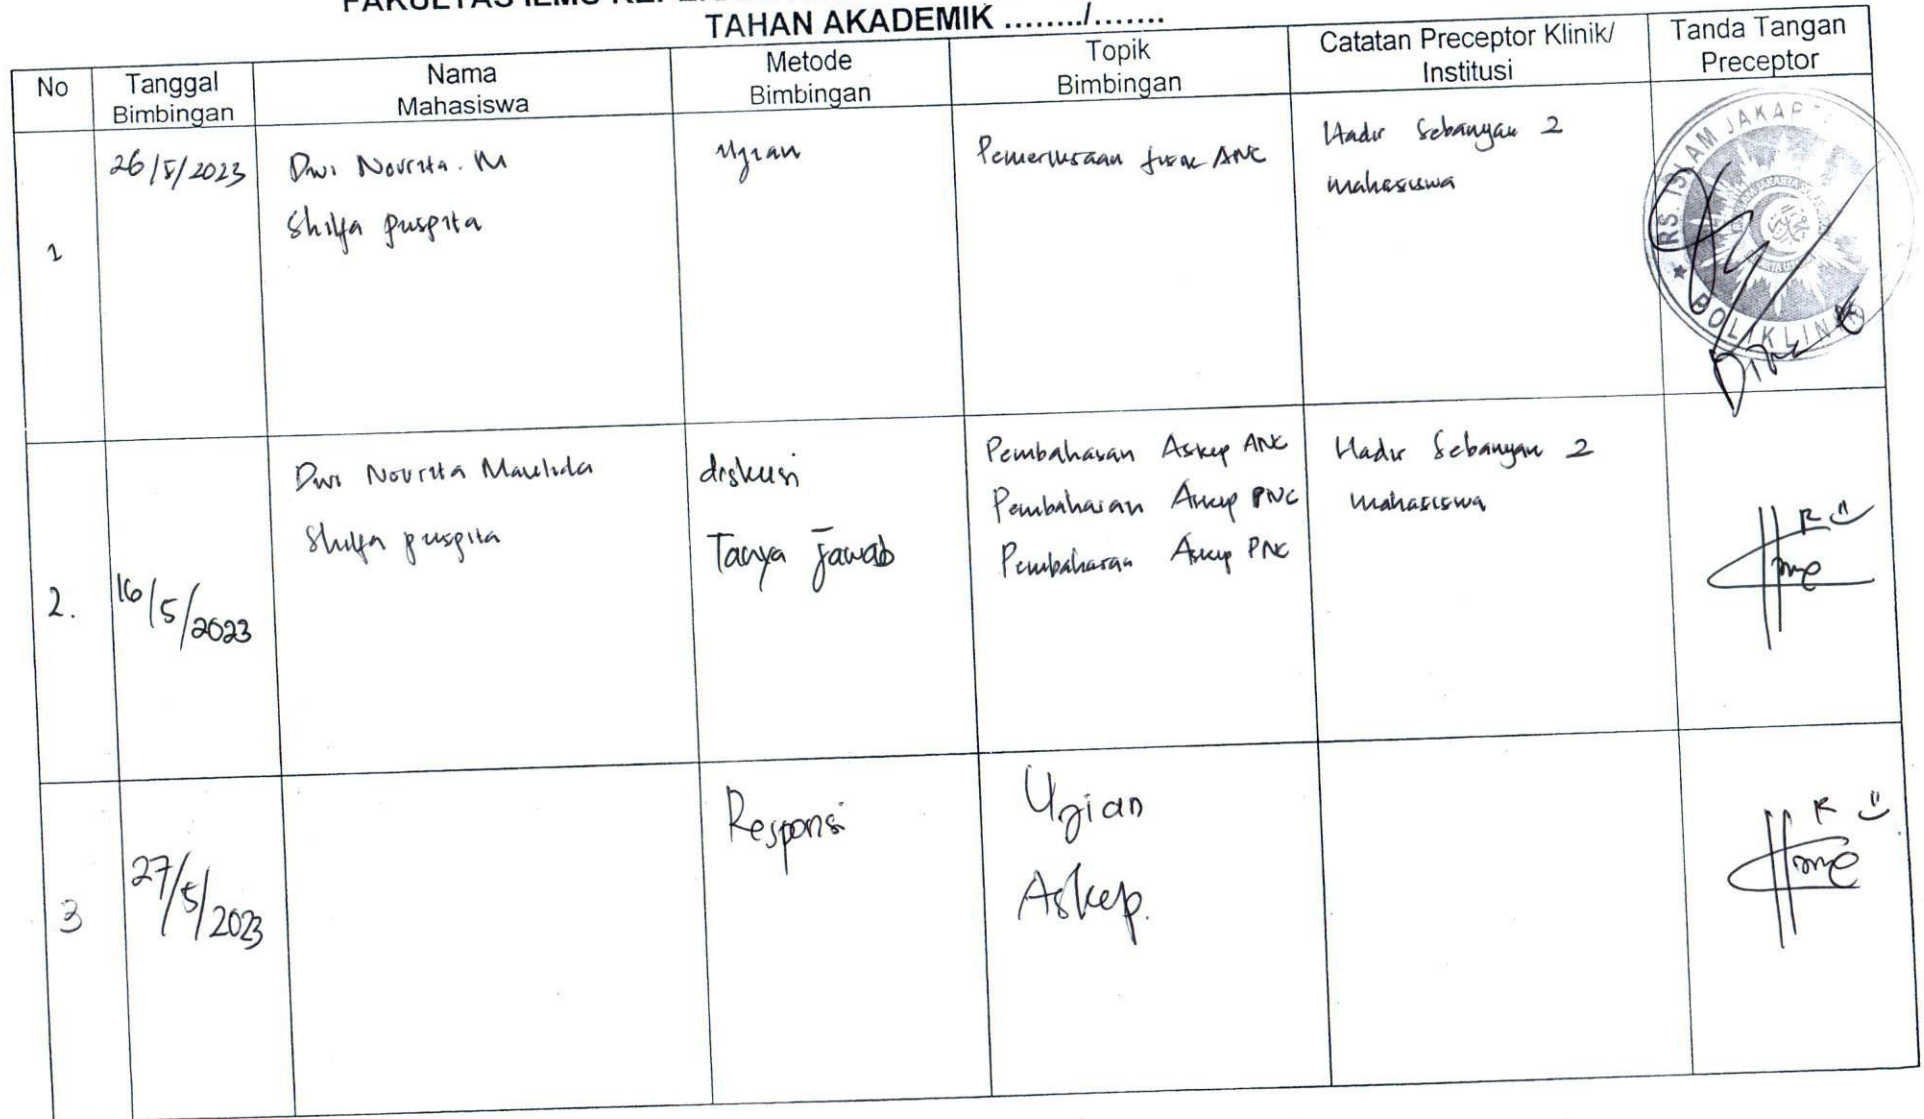 FAKULTAS ILMU
TAHAN AKADEMIK ......../.......
No
Tanggal
Bimbingan
Nama
Mahasiswa
Metode
Bimbingan
Topik
Bimbingan
Catatan Preceptor Klinik/
Institusi
Tanda Tangan
Preceptor
1
26/5/2023
Dwi Novrita. M
Shilfa puspita
Ujian
Pemeriksaan fisik ANC
Hadir Sebanyak 2
mahasiswa
RS. ISLAM JAKART
POLIKLINIK
2.
16/5/2023
Dwi Novrita Maulida
Shilfa puspita
diskusi
Tanya Jawab
Pembahasan Askep ANC
Pembahasan Askep PNC
Pembahasan Askep PNC
Hadir Sebanyak 2
mahasiswa
3
27/5/2023
Responsi
Ujian
Askep.